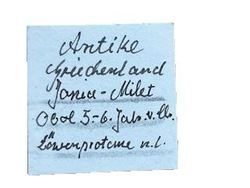 Antike
Griechenland
Jonien-Milet
Obol 5.-6. Jah. v.
Löwenprotome n.l.